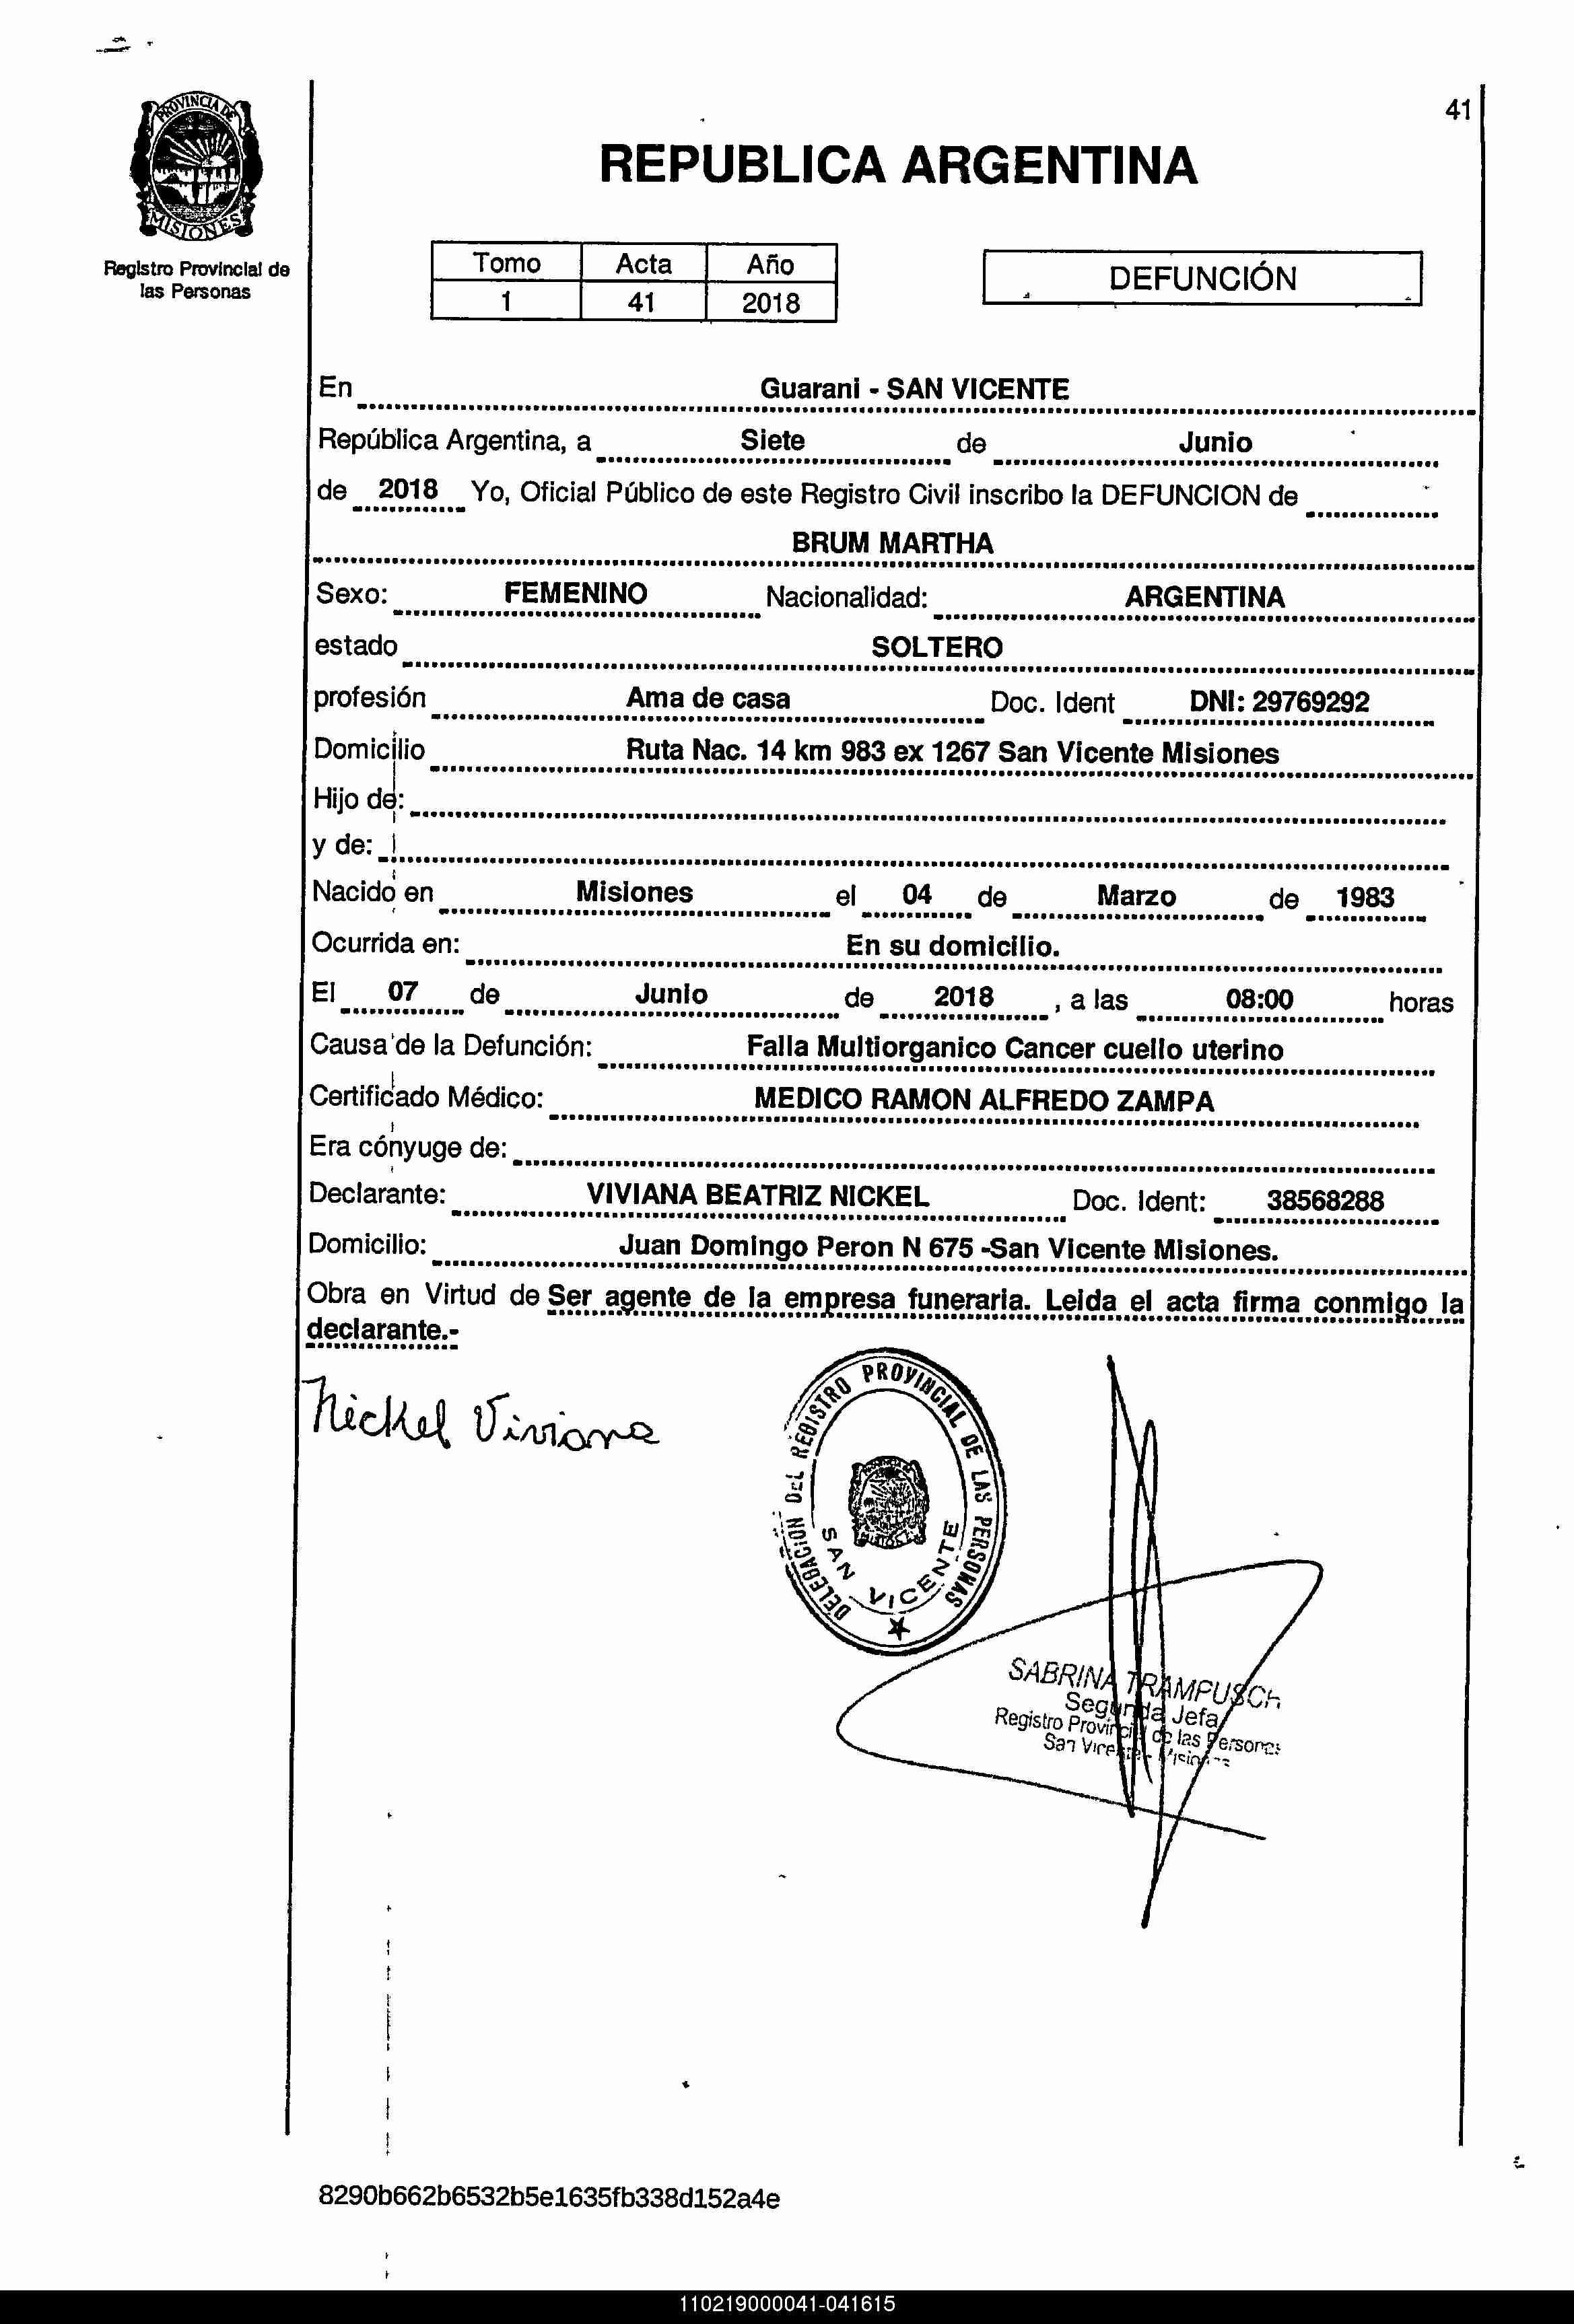 41
PROVINCIA DE
MISIONES
Registro Provincial de
las Personas
REPUBLICA ARGENTINA
Tomo Acta Año
1 41 2018
DEFUNCIÓN
En Guarani - SAN VICENTE
República Argentina, a Siete de Junio
de 2018 Yo, Oficial Público de este Registro Civil inscribo la DEFUNCION de
BRUM MARTHA
Sexo: FEMENINO Nacionalidad: ARGENTINA
estado SOLTERO
profesión Ama de casa Doc. Ident DNI: 29769292
Domicilio Ruta Nac. 14 km 983 ex 1267 San Vicente Misiones
Hijo de:
y de:
Nacido en Misiones el 04 de Marzo de 1983
Ocurrida en: En su domicilio.
El 07 de Junio de 2018 , a las 08:00 horas
Causa de la Defunción: Falla Multiorganico Cancer cuello uterino
Certificado Médico: MEDICO RAMON ALFREDO ZAMPA
Era cónyuge de:
Declarante: VIVIANA BEATRIZ NICKEL Doc. Ident: 38568288
Domicilio: Juan Domingo Peron N 675 -San Vicente Misiones.
Obra en Virtud de Ser agente de la empresa funeraria. Leida el acta firma conmigo la
declarante.-
Nickel Viviana
DELEGACION DEL REGISTRO PROVINCIAL DE LAS PERSONAS
SAN VICENTE
SABRINA TRAMPUSCH
Segunda Jefa
Registro Provincial de las Personas
San Vicente - Misiones
8290b662b6532b5e1635fb338d152a4e
110219000041-041615